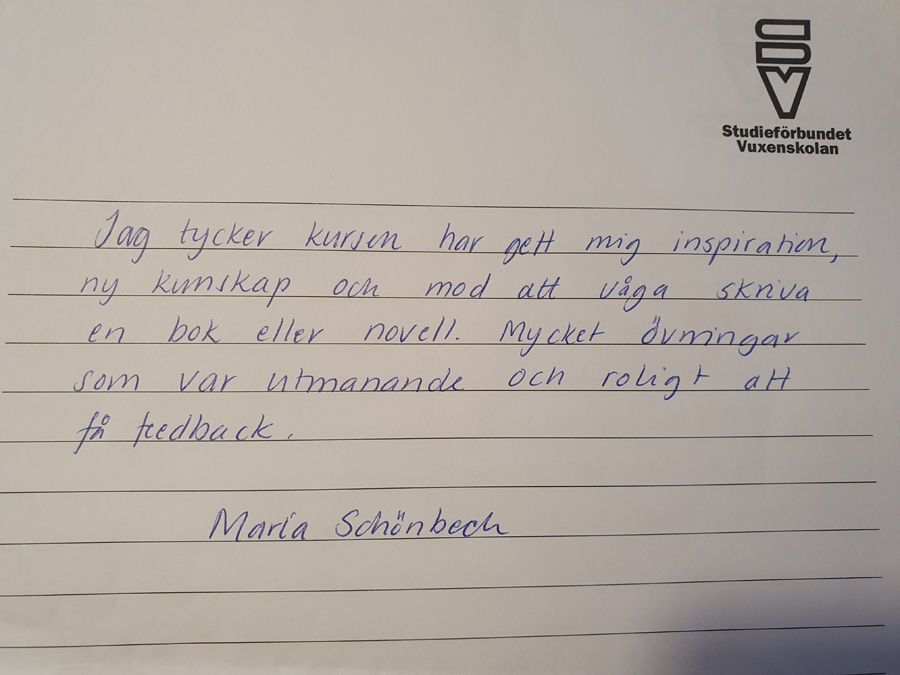 Studieförbundet
Vuxenskolan
Jag tycker kursen har gett mig inspiration,
ny kunskap och mod att våga skriva
en bok eller novell. Mycket övningar
som var utmanande och roligt att
få feedback.
Maria Schönbeck